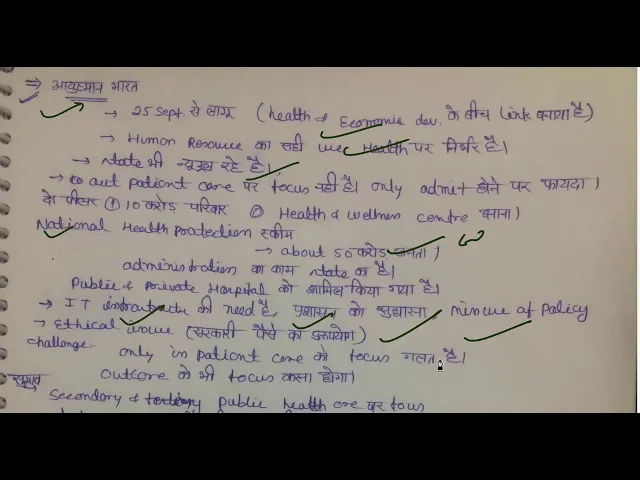 ⇒ आयुष्मान भारत
→ 25 Sept. से लागू (health & Economic dev. के बीच Link बनाया है)
→ Human Resource का सही use Health पर निर्भर है।
→ state भी रहे है।
→ out patient care पर focus नही है। only admit होने पर फायदा।
दो पीलर ① 10 करोड़ परिवार ② Health & wellness centre बनाना)
National Health protection स्कीम
→ about 50 करोड़ जनता)
administration का काम state का है।
Public & private Hospital को शामिल किया गया है।
→ IT की need है, प्रशासन को सुधारना, misuse of Policy
→ Ethical issue (सरकारी पैसे का दुरूपयोग)
challenge only in patient care को focus गलत है।
के भी focus करना होगा।
सुझाव
Secondary & tertiary public health care पर